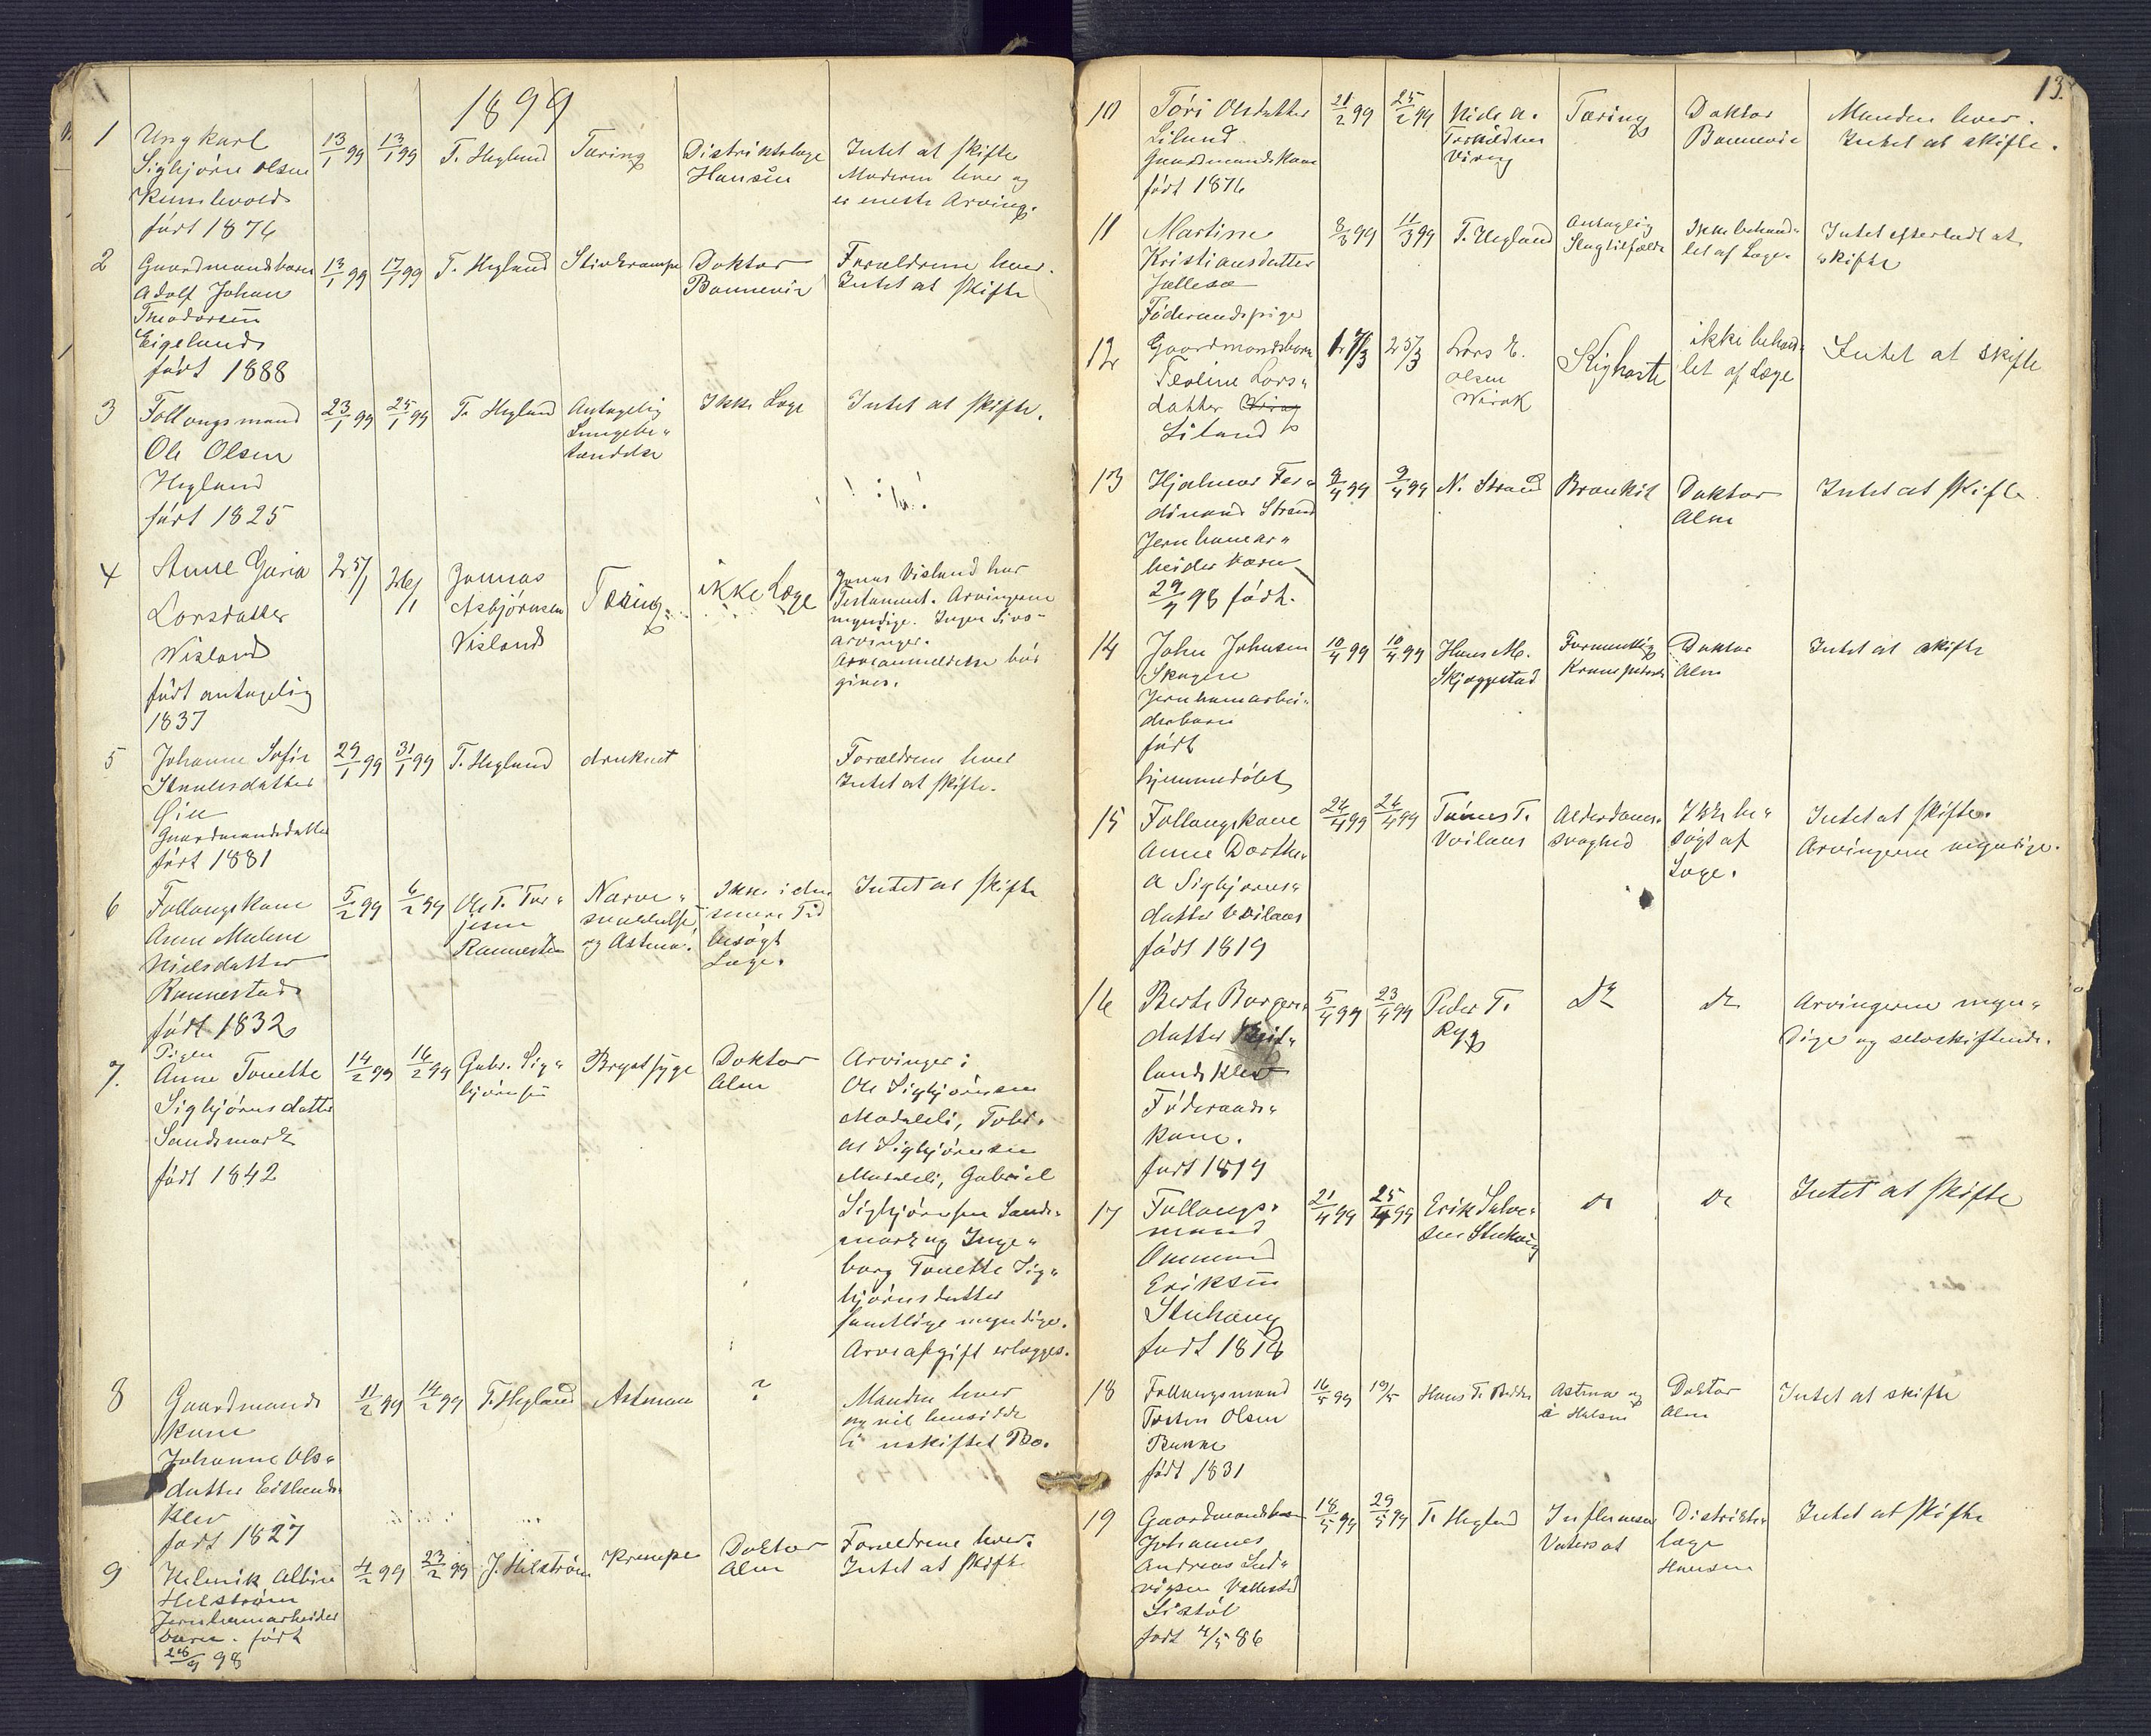 1899
1
Ungkarl
Sigbjørn Olsen
født 1876
13/1 99
13/1 99
T. Hegland
Tæring
Distriktslæge
Hansen
Intet at skifte
Moderen lever og
er eneste Arving.
2
Gaardmandsbarn
Adolf Johan
Theodorsen
Eigeland
født 1888
13/1 99
17/1 99
T. Hegland
Stivkrampe
Doktor
Bonnevie
Forældrene lever.
Intet at skifte
3
Follaugsmand
Ole Olsen
Hegland
født 1825
23/1 99
25/1 99
T. Hegland
Antagelig
Lungebe-
tændelse
Ikke Læge
Intet at skifte.
4
Anne Guria
Larsdatter
Wisland
født antagelig
1837
25/1
26/1
Jonnas
Asbjørnsen
Visland
Tæring
ikke Læge
Jonas Visland har
Testament. Arvingerne
myndige. Ingen Livs-
arvinger.
Arveanmeldelse bør
gives.
5
Johanne Sofie
datter
Øie
Gaardmandsdatter
født 1881
29/1 99
31/1 99
T. Hegland
druknet
Forældrene lever
Intet at skifte.
6
Follaugskone
Anne Malene
Nielsdatter
Rannestad
født 1832
5/2 99
6/2 99
Ole T. Ter-
jesen
Rannestad
Nerve-
svækkelse
og Astma.
Ikke i den
senere Tid
besøgt
Læge.
Intet at skifte
7.
Pigen
Anne Tonette
Sigbjørnsdatter
Sandsmark
født 1842
14/2 99
16/2 99
Gabr. Sig-
bjørnsen
Brystsyge
Doktor
Alm
Arvinger:
Ole Sigbjørnsen
Modalsli, Tobi-
as Sigbjørnsen
Modalsli, Gabriel
Sigbjørnsen Sands-
mark og Inge-
borg Tonette Sig-
bjørnsdatter
samtlige myndige.
Arveafgift erlægges.
8
Gaardmands
kone
Johanne Ols-
datter Eitlands-
klev
født 1827
11/2 99
14/2 99
T. Hegland
Astman
?
Manden lever
og vil hensidde
i uskiftet Bo.
9
Helmik Albin
Helstrøm
Jernbanearbeider
barn. født
28/9 98
4/2 99
23/2 99
J. Helstrøm
Krampe
Doktor
Alm
Forældrene lever.
Intet at skifte
13.
10
Tøri Olsdatter
Liland
Gaardmandskone
født 1876
21/2 99
25/2 99
Niels A.
Torkildsen
Virag
Tæring
Doktor
Bonnevie
Manden lever.
Intet at skifte.
11
Martine
Kristiansdatter
Føderaadspige
8/3 99
11/3 99
T. Hegland
Antagelig
Slagtilfælde
Ikke behand-
let af Læge.
Intet efterladt at
skifte
12
Gaardmandsbarn
Teoline Lars-
datter Virag
Liland
17/3
25/3
Lars E.
Olsen
Wirak
Kighoste
ikke behand-
let af Læge
Intet at skifte
13
Hjalmar Fer-
dinand Strand
Jernbanear-
beider barn
29/7 98 født.
9/4 99
9/4 99
N. Strand
Bronkit
Doktor
Alm
Intet at skifte
14
John Johnsen
Skagen
Jernbanearbei-
derbarn
født
hjemmedøbt
10/4 99
10/4 99
Hans M.
Skjæggestad
Formentlig
Doktor
Alm
Intet at skifte
15
Follaugskone
Anne Dorthe-
a Sigbjørns-
datter Voilaas
født 1819
24/4 99
24/4 99
Tønnes T.
Voilaas
Alderdoms-
svaghed
Ikke be-
søgt af
Læge.
Intet at skifte.
Arvingerne myndige.
16
Berte Børges-
datter
lands Klev
Føderaads-
kone.
født 1819
5/4 99
23/4 99
Peder T.
Rygg
Do
do
Arvingerne myn-
dige og selvskiftende.
17
Follaugs-
mand
Ommund
Eriksen
født 1818
21/4 99
25/4 99
Erik Salve-
sen
do
do
Intet at skifte
18
Follaugsmand
Torten Olsen
født 1831
16/5 99
19/5
Hans T.
Astma og
i Halsen
Doktor
Alm
Intet at skifte
19
Gaardmandsbarn
Johannes
Andreas Lud-
vigsen Vallestad
Listøl
født 4/5 86
18/5 99
29/5 99
T. Hegland
Influensa
Distrikts-
læge
Hansen
Intet at skifte